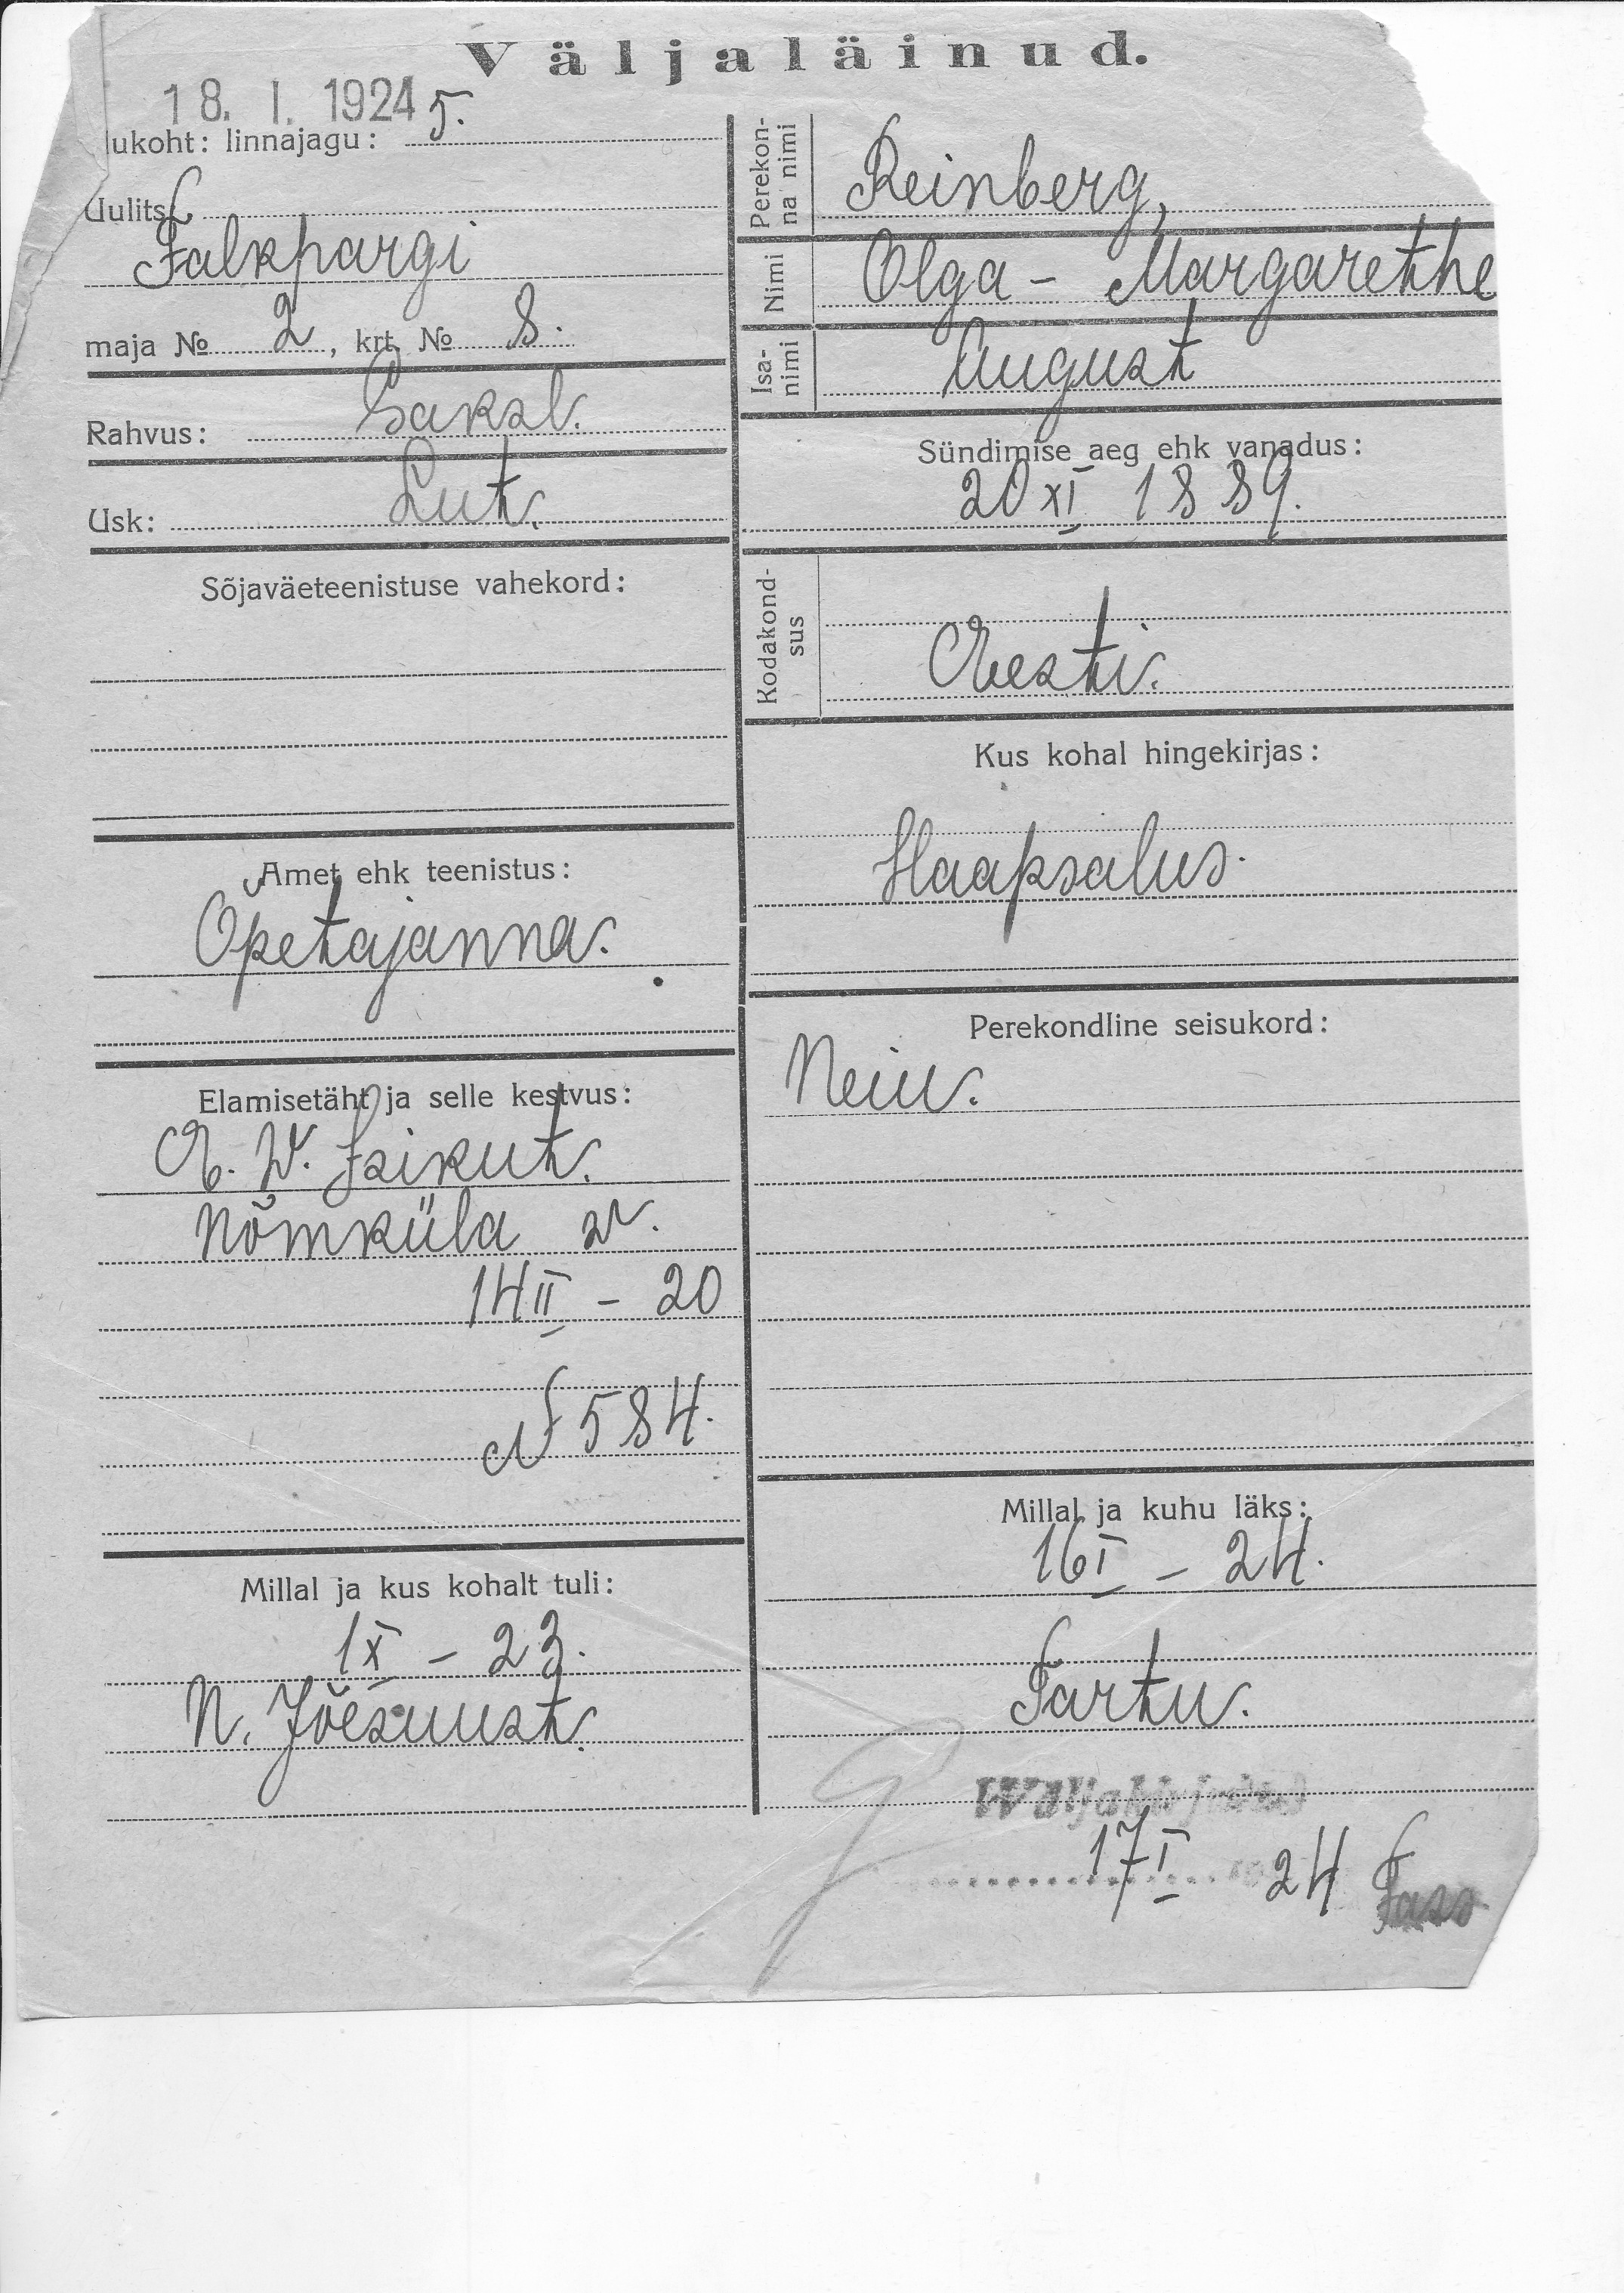 Väljaläinud.
18. I. 1924
ukoht: linnajagu: 5.
Uulits
Falkpargi
maja № 2, krt. № 8.
Rahvus: Saksl.
Usk: Lut.
Sõjaväeteenistuse vahekord:
Amet ehk teenistus:
Õpetajanna.
Elamisetäht ja selle kestvus:
E. W. Isikut.
Nõmküla w.
14 II - 20
№ 584.
Millal ja kus kohalt tuli:
1 X - 23.
N. Jõesuust.
Perekonna nimi
Reinberg,
Nimi
Olga - Margarethe
Isanimi
August
Sündimise aeg ehk vanadus:
20 XI 1889.
Kodakondsus
Eesti.
Kus kohal hingekirjas:
Haapsalus.
Perekondline seisukord:
Neiu.
Millal ja kuhu läks:
16 I - 24.
Tartu.
Wäljakirjutud
17 I 24